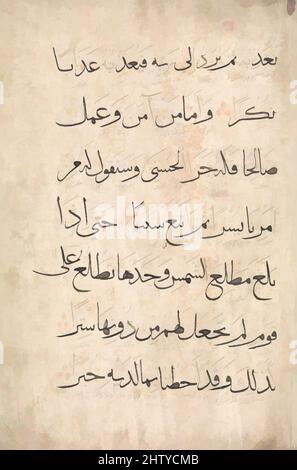 نعذبه ثم يرد الى ربه فيعذبه عذابا
نكرا واما من آمن وعمل
صالحا فله جزا الحسنى وسنقول له من
امرنا يسرا ثم اتبع سببا حتى اذا
بلغ مطلع الشمس وجدها تطلع على
قوم لم نجعل لهم من دونها سترا
كذلك وقد احطنا بما لديه خبرا
alamy
Image ID: 2HTYCMB
www.alamy.com